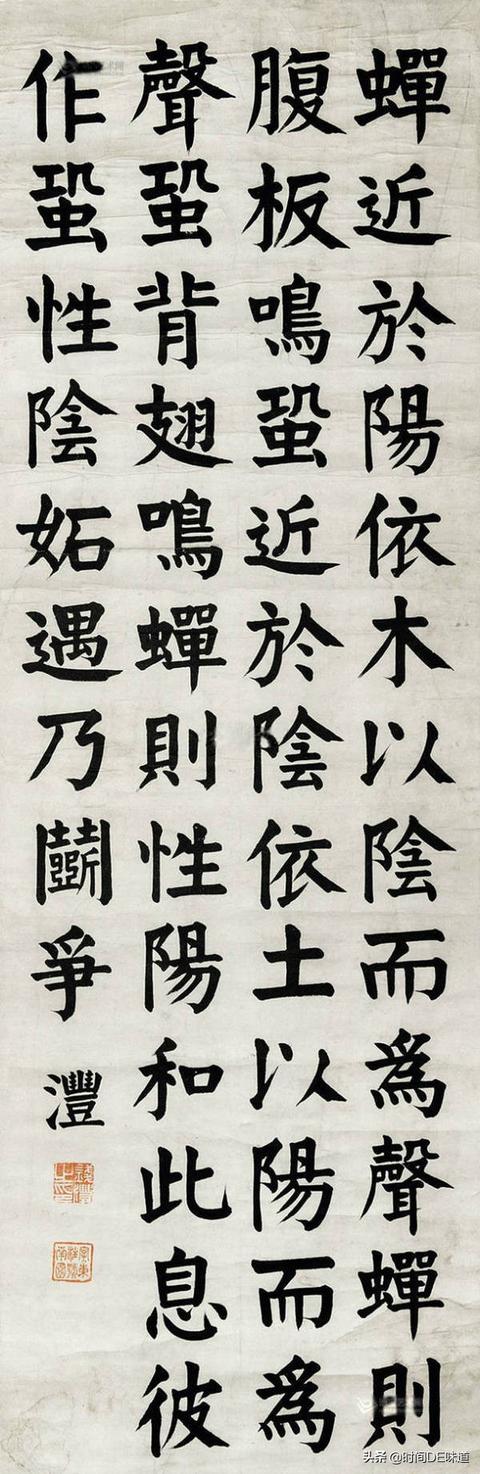 蟬近於陽依木以陰而爲聲蟬則
腹板鳴蛩近於陰依土以陽而爲
聲蛩背翅鳴蟬則性陽和此息彼
作蛩性陰妬遇乃鬭爭
灃
头条 @时间DE味道